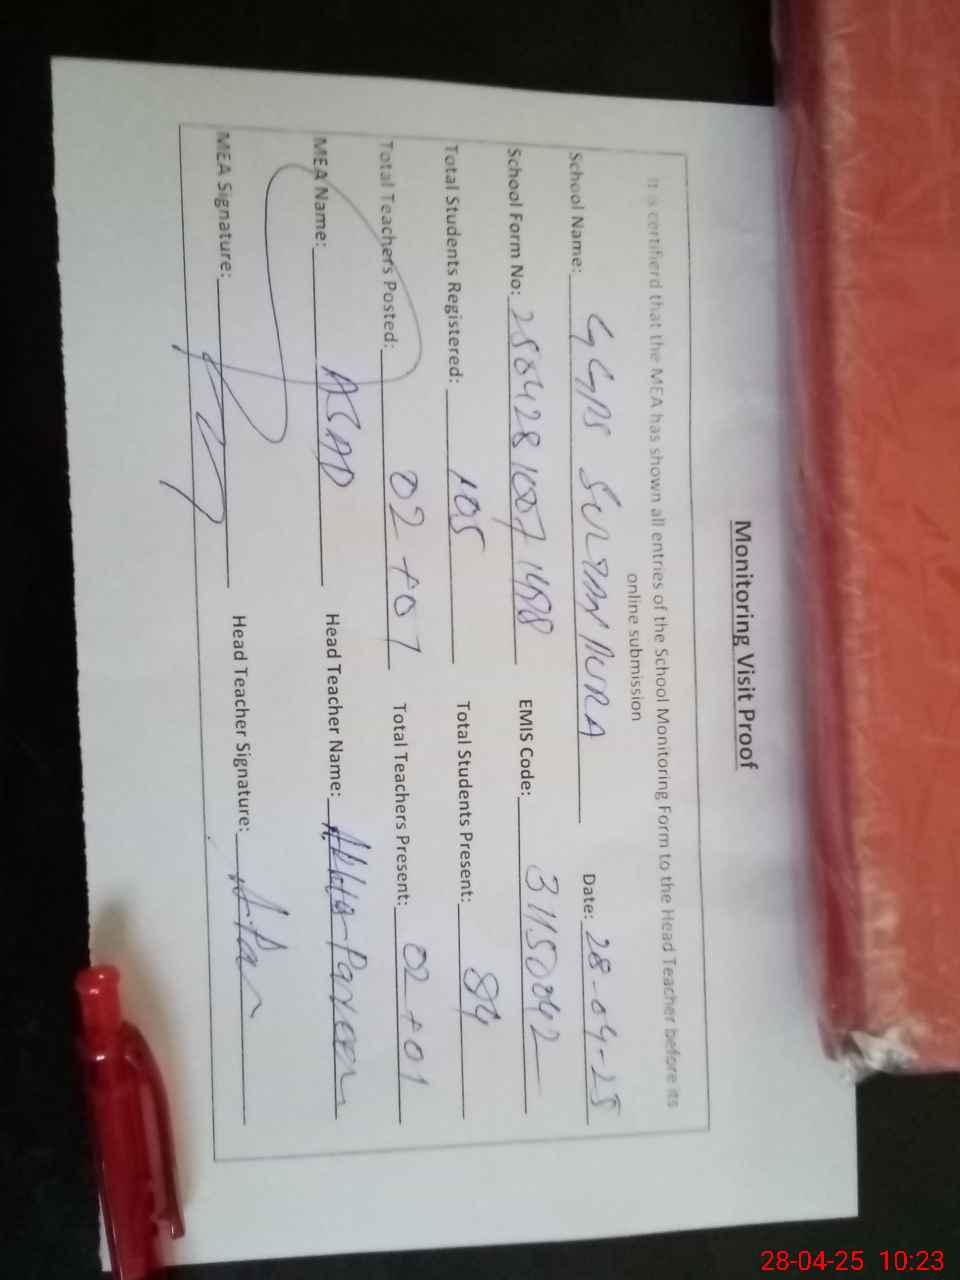 Monitoring Visit Proof
It is certifierd that the MEA has shown all entries of the School Monitoring Form to the Head Teacher before its
online submission
School Name: GGPS Date: 28-04-25
School Form No: EMIS Code: 31150042
Total Students Registered: 105 Total Students Present: 84
Total Teachers Posted: 02+01 Total Teachers Present: 02+01
MEA Name: ASAD Head Teacher Name: Parveen
MEA Signature: Head Teacher Signature:
28-04-25 10:23